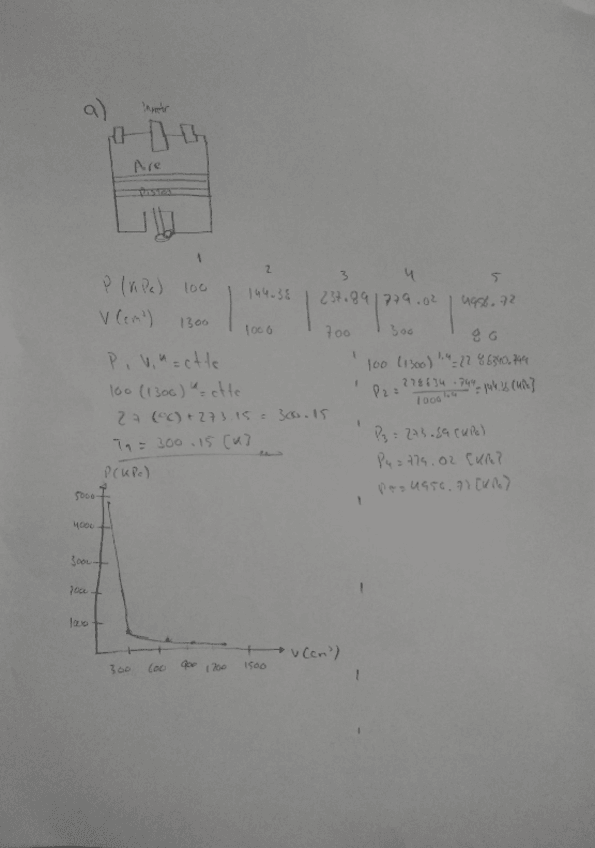 a)
Aire
Piston
1 2 3 4 5
P (KPa) 100 144.38 237.89 779.02 4956.72
V (cm³) 1300 1000 700 300 80
P₁ V₁ᴷ = ctte
100 (1300)ᴷ = ctte
27 (°C) + 273.15 = 300.15
T₁ = 300.15 [K]
100 (1300)¹·⁴ =
P₂ = = 144.38 [KPa]
1000¹·⁴
P₃ = 273.89 [KPa]
P₄ = 779.02 [KPa]
P₅ = 4956.72 [KPa]
P(KPa)
5000
4000
3000
2000
1000
300 600 900 1200 1500
V (cm³)